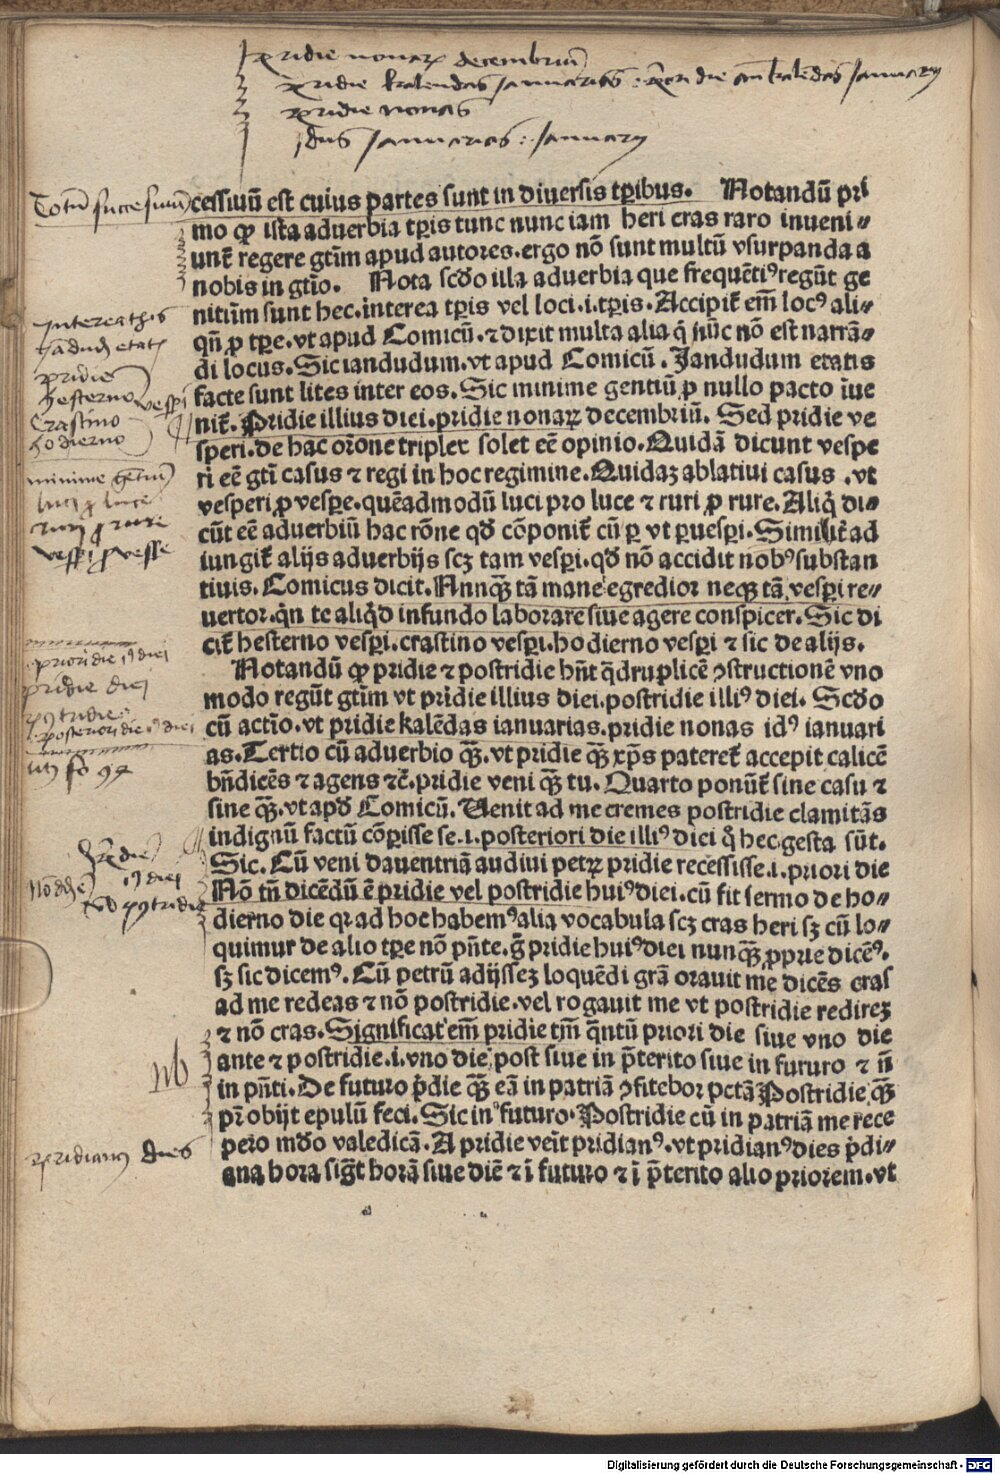 pridie nonarꝫ decembriū
pridie kalendas Januarias : priori die an̄ kalēdas Januarÿ
pridie nonas
Idus Januarias : Januarÿ
Totū succesiuū
cessiuū est cuius partes sunt in diuersis tꝑibus. Notandū pri
mo ꝙ ista aduerbia tꝑis tunc nunc iam heri cras raro inueni⸗
unt̄ regere gt̄im apud autores.ergo nō sunt multū vsurpanda a
nobis in gt̄io. Nota scd̄o illa aduerbia que frequēti⁹ regūt ge
nitiūm sunt hec.interea tꝑis vel loci.i.tꝑis.Accipit̄ em̄ loc⁹ ali⸗
qn̄ ꝓ tꝑe.vt apud Comicū.⁊ dixit multa alia q̄ nūc nō est narrā⸗
di locus.Sic iandudum.vt apud Comicū. Jandudum etatis
facte sunt lites inter eos.Sic minime gentiū ꝓ nullo pacto īue
nit̄. Pridie illius diei.pridie nonaꝝ decembriū. Sed pridie ve
speri.de hac or̄one triplex solet eē opinio.Quidā dicunt vespe
ri eē gt̄i casus ⁊ regi in hoc regimine.Quidaꝫ ablatiui casus .vt
vesperi ꝓ vespe.quēadmodū luci pro luce ⁊ ruri ꝓ rure.Aliq̄ di⸗
cūt eē aduerbiū hac rōne qd̄ cōponit̄ cū ꝑ vt ꝑuesꝑi.Similit̄ ad
iungit̄ alijs aduerbijs scꝫ tam vesꝑi.qd̄ nō accidit nob⁹ substan
tiuis.Comicus dicit.Nunqꝫ̄ tā mane egredior neqꝫ tā vesꝑi re⸗
uertor.qn̄ te aliqd̄ in fundo laborare siue agere conspicer.Sic di
cit̄ hesterno vesꝑi.crastino vesꝑi.hodierno vesꝑi ⁊ sic de alijs.
Notandū ꝙ pridie ⁊ postridie hn̄t q̄druplicē ꝯstructionē vno
modo regūt gt̄im vt pridie illius diei.postridie illi⁹ diei. Scd̄o
cū actīo.vt pridie kalēdas ianuarias.pridie nonas id⁹ ianuari
as.Tertio cū aduerbio qꝫ̄.vt pridie qꝫ̄ xp̄s pateret̄ accepit calicē
bn̄dicēs ⁊ agens ⁊c̄.pridie veni qꝫ̄ tu. Quarto ponūt̄ sine casu ⁊
sine qꝫ̄.vt apd̄ Comicū. Uenit ad me cremes postridie clamitās
indignū factū cōꝑisse se.i.posteriori die illi⁹ diei q̄ hec gesta sūt.
Sic. Cū veni dauentriā audiui petrꝫ pridie recessisse.i.priori die
Nō tn̄ dicēdū ē pridie vel postridie hui⁹ diei.cū fit sermo de ho⸗
dierno die qr ad hoc habem⁹ alia vocabula scꝫ cras heri sꝫ cū lo⸗
quimur de alio tꝑe nō pn̄te.g̊ pridie hui⁹ diei nunqꝫ̄ ꝓprie dicē⁹.
sꝫ sic dicem⁹. Cū petrū adijsseꝫ loquēdi grā orauit me dicēs cras
ad me redeas ⁊ nō postridie.vel rogauit me vt postridie redireꝫ
⁊ nō cras.Significat em̄ pridie tm̄ q̄ntū priori die siue vno die
ante ⁊ postridie.i.vno die post siue in p̄terito siue in futuro ⁊ n̄
in pn̄ti.De futuro p̄die qꝫ̄ eā in patriā ꝯfitebor pctā Postridie qꝫ̄
pr̄ obijt epulū feci.Sic in futuro.Postridie cū in patriā me rece
pero mō̄o valedicā.A pridie veīt pridian⁹.vt pridian⁹ dies p̄di⸗
ana hora sigt̄ horā siue diē ⁊ ī futuro ⁊ ī p̄terito alio priorem.vt
Interea tꝑis
pridie
hesterno
Crastino
hodierno
vesꝑi
minime gētiū
luci ꝓ luce
ruri ꝓ rure
vesꝑi ꝓ vesꝑe
priori die
pridie diei
postridie
posteriori die
nb
pridian⁹ dies
Digitalisierung gefördert durch die Deutsche Forschungsgemeinschaft - DFG